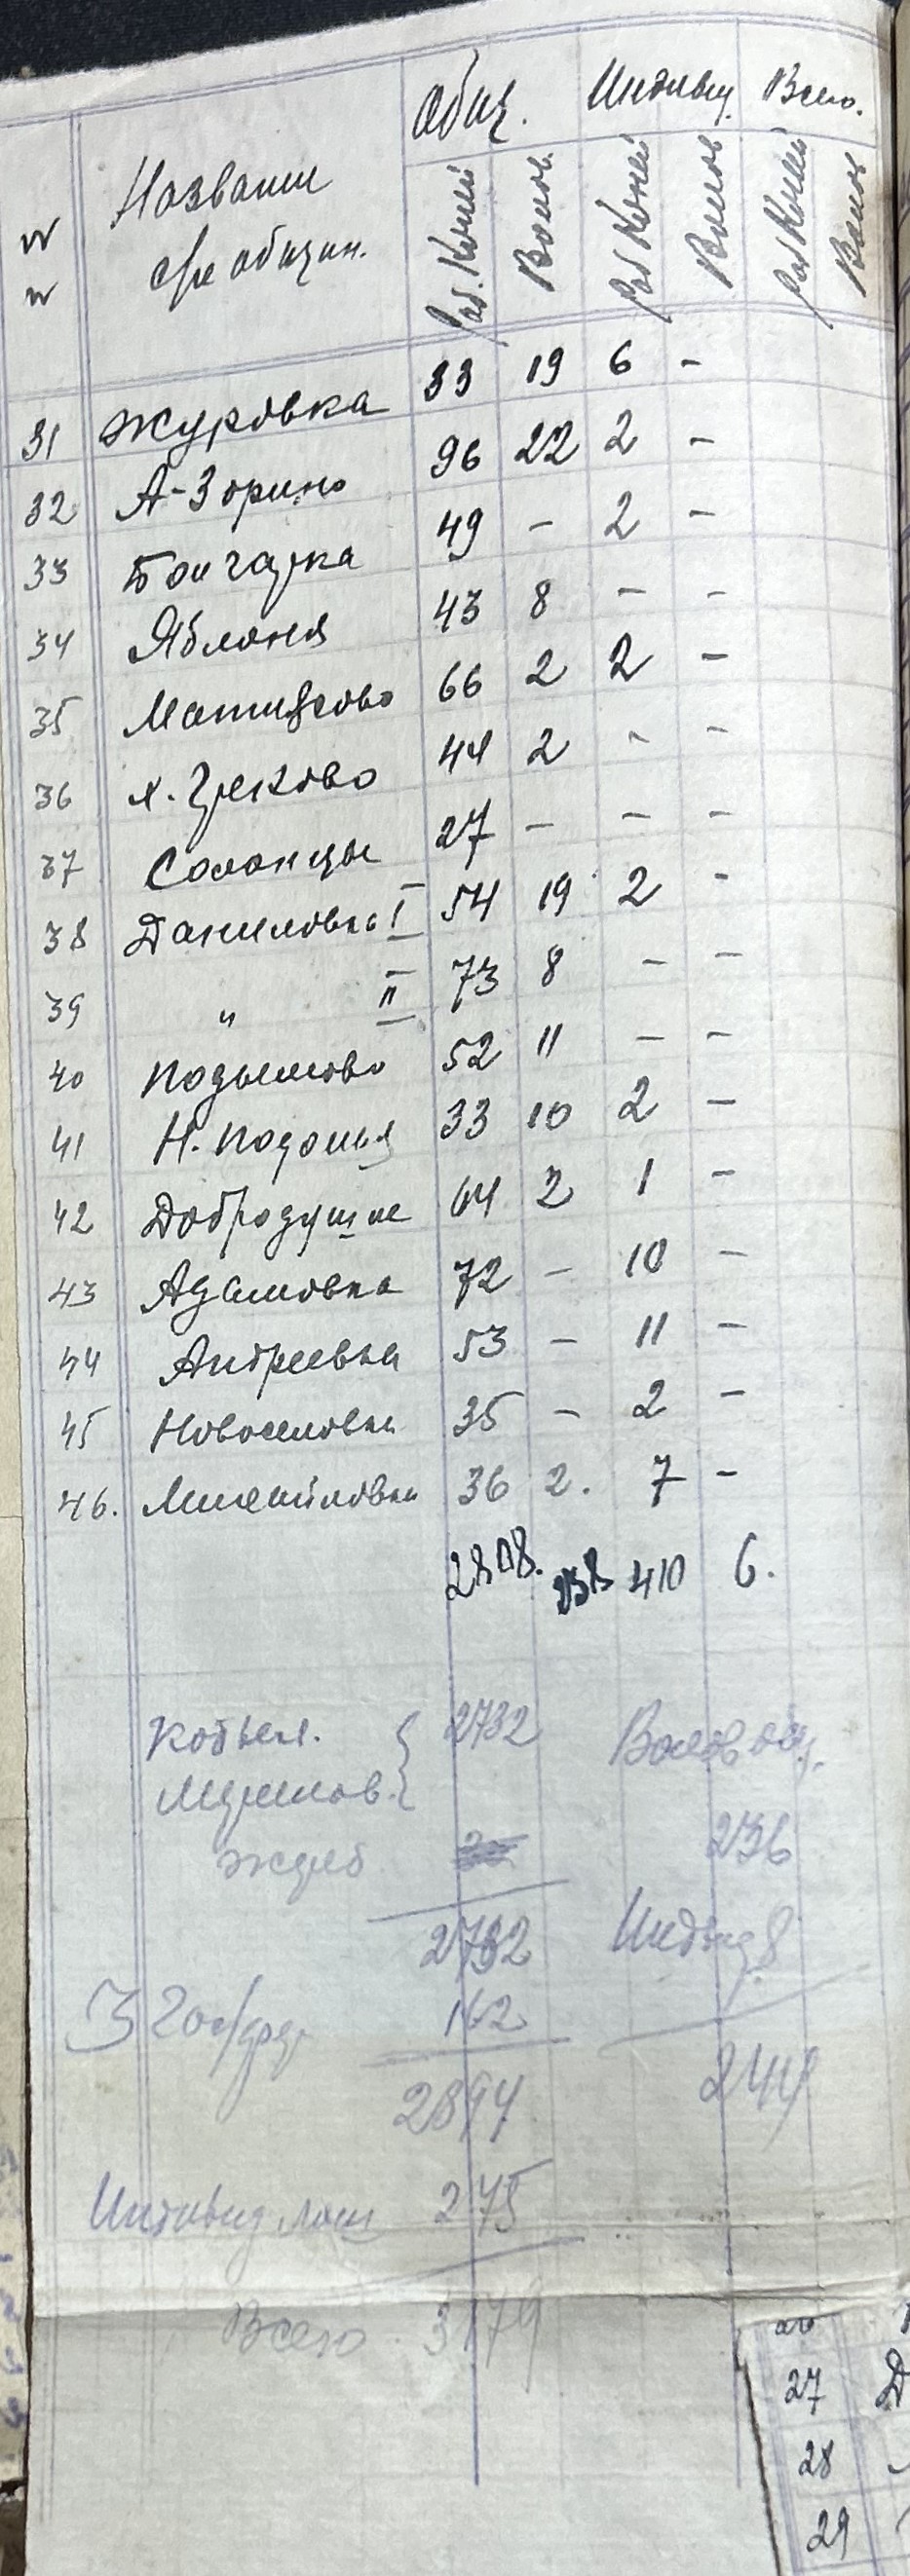 Общ. Индивид. Всего.
№ № Название с/х общин. Раб. Коней Волов. Раб Коней Волов Раб Коней Волов
31 Журовка 33 19 6 -
32 А-Зорино 96 22 2 -
33 49 - 2 -
34 Яблоня 43 8 - -
35 Матишово 66 2 2 -
36 х. Греково 44 2 - -
37 Солонцы 27 - - -
38 Даниловка I 54 19 2 -
39 " II 73 8 - -
40 Подымово 52 11 - -
41 Н. 33 10 2 -
42 Добродушие 64 2 1 -
43 Адамовка 72 - 10 -
44 Андреевка 53 - 11 -
45 Новоселовка 35 - 2 -
46. Михайловка 36 2. 7 -
2808. 238 410 6.
Кобыл. { 2732 Волов общ.
Меринов.
Жереб 236
2732 Индвид 8
3 162
2894 244
Индивид лош 275
Всего 3179
27 Д
28
29